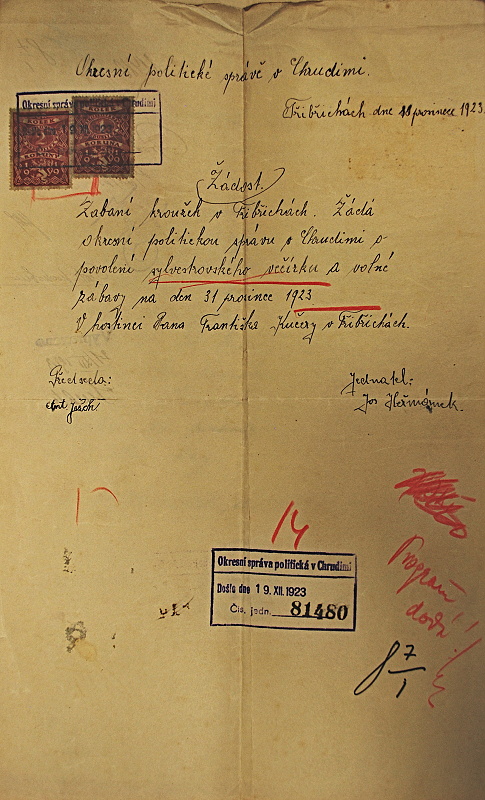 Okresní politické správě v Chrudimi.
Okresní správa politická v Chrudimi
KOLEK
KOLEK
KORUNA
Třibřichách dne 18 prosince 1923.
Žádost.
Zabavní kroužek v Třibřichách. Žádá
okresní politickou správu v Chrudimi o
povolení sylvestrovského večírku a volné
zábavy na den 31 prosince 1923
V hostinci Pana Františka Kučery v Třibřichách.
Předseda:
Jednatel:
Ant Ješch
Jos Heřmánek.
14
Okresní správa politická v Chrudimi
Došlo dne 19. XII. 1923
Čís. jedn. 81480
Program
dodá!